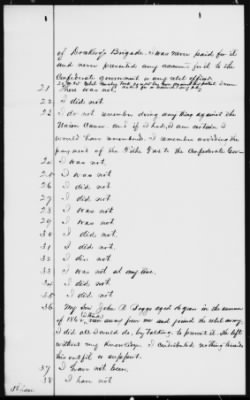 1
of Brigade. I was never paid for it
and never presented any account for it to the
Confederate government or any rebel officer.
21 There was not.
22 I did not
23 I do not remember doing any thing against the
Union Cause. and if I had, I am certain I
would have remembered. I remember avoiding the
payment of the Tithe Tax to the Confederate Gov-
24 I was not.
25 I was not
26 I did not
27 I did not
28 I was not
29 I was not
30 I did not.
31 I did not.
32 I did not
33 I was not at any time.
34 I did not.
35 I did not.
36 My Son John R Boggs aged 16 years in the summer
of 1862, ran away from me and joined the rebel army
I did all I could do, by talking, to prevent it. He left
without my Knowledge. I contributed nothing towards
his outfit or support.
37 I have not been.
38 I have not